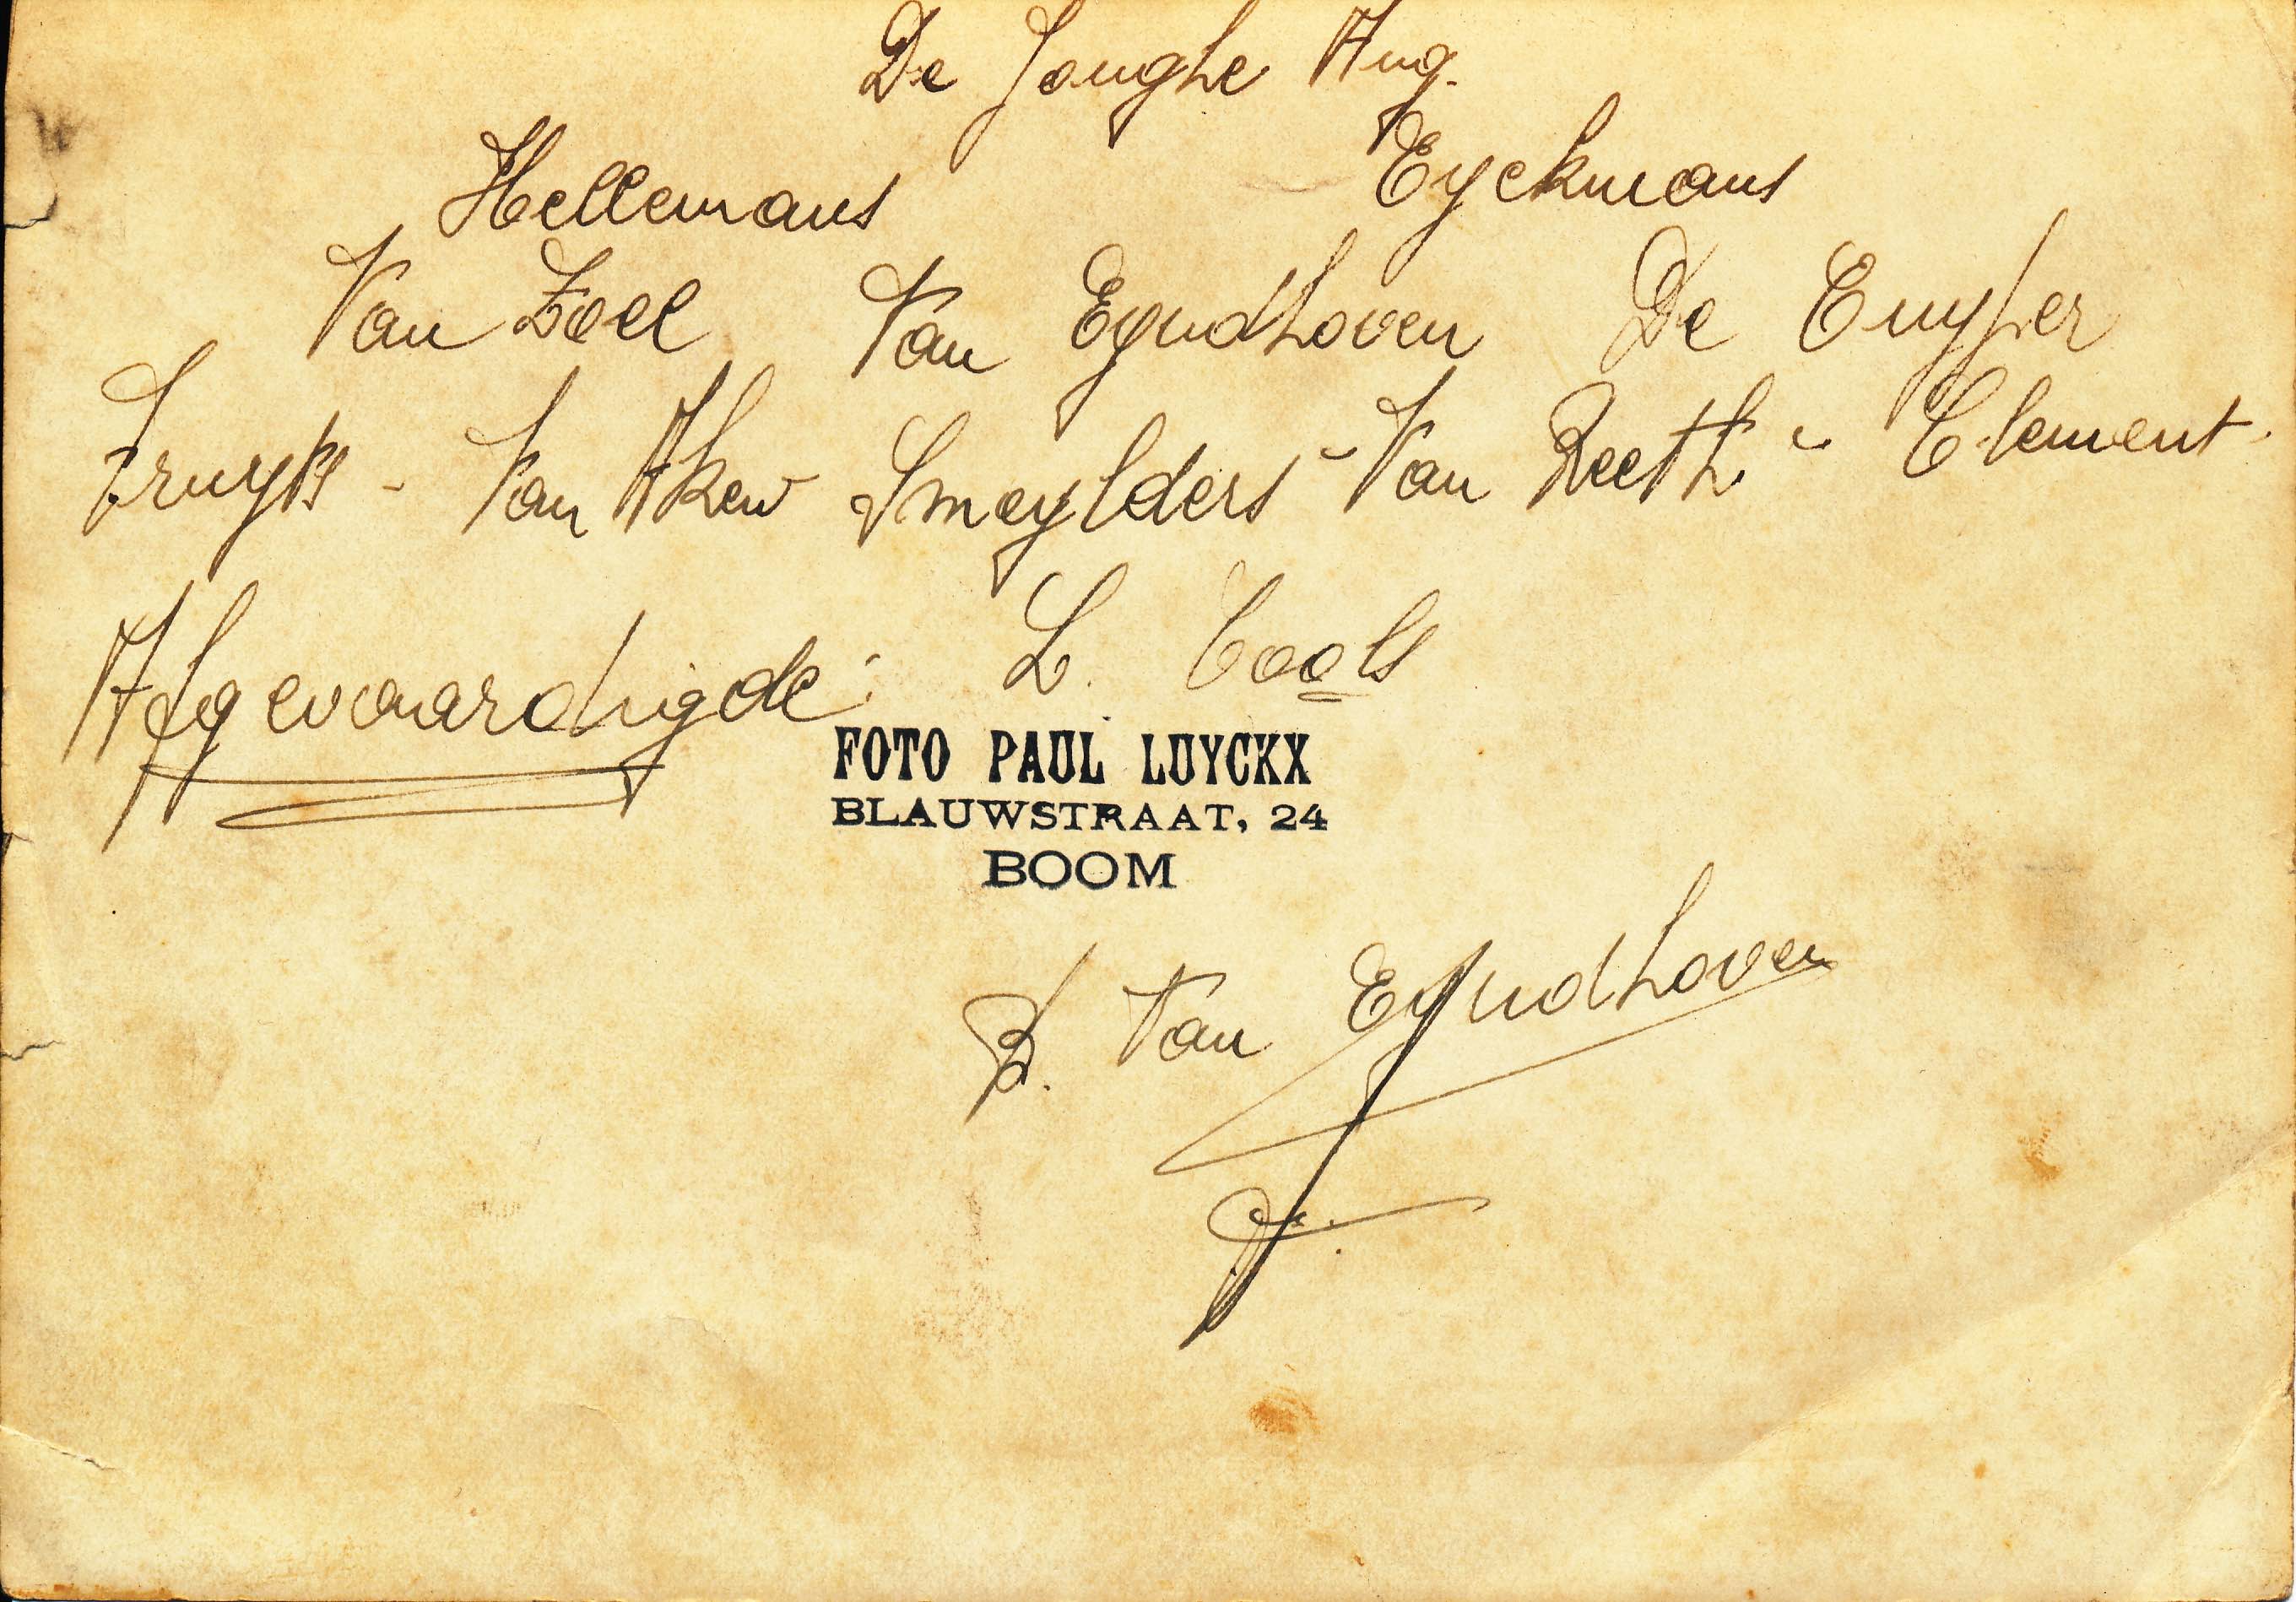 De Jonghe Aug.
Hellemans Eyckmans
Van Zoel Van Eyndhoven De Cuyper
Truyts - Van Aken Smeylders - Van Reeth - Clement.
Afgevaardigde: L. Cools
FOTO PAUL LUYCKX
BLAUWSTRAAT, 24
BOOM
B. Van Eyndhoven